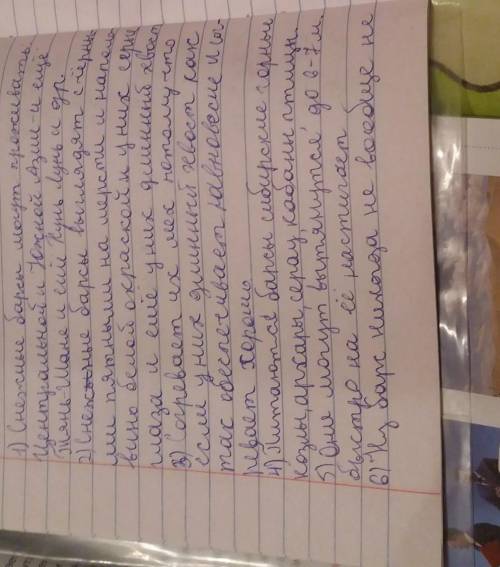 1) Снежные барсы могут проживать
Центральной и Южной Азии и ещё
Тянь-Шане и ещё Кунь Лунь и др.
2) Снежные барсы выглядят с чёрны-
ми пятнами на шерсти и напоми-
белой окраской и у них серы
глаза и ещё у них длинный хвост
3) Согревает их мех потому-что
если у них длинный хвост как
обеспечивает равновесие и со-
гревает хорошо.
4) Питаются барсы сибирские горные
козлы, архары, серау, кабаны птицы.
5) Они могут вытянутся до 6-7 м.
быстро на её настигает
6) Из барс никогда не вообще не